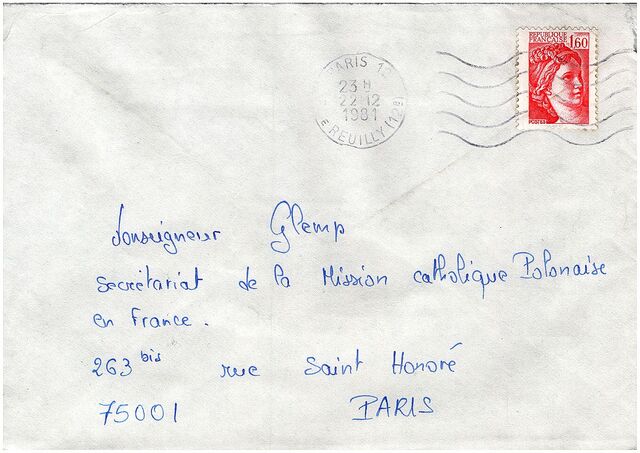 REPUBLIQUE
FRANÇAISE 1,60
POSTES
PARIS 12
23 H
22-12
1981
R. REUILLY (12e)
Monseigneur Glemp
Secrétariat de la Mission catholique Polonaise
en France.
263 bis rue Saint Honoré
75001 PARIS